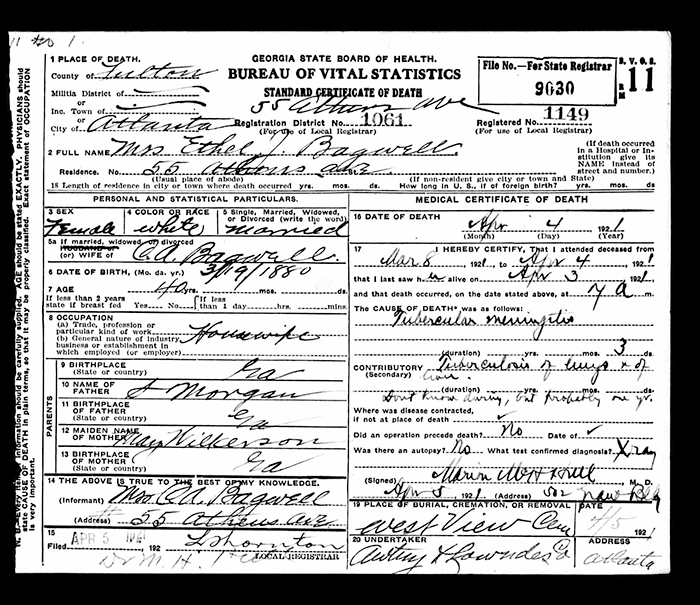 GEORGIA STATE BOARD OF HEALTH.
BUREAU OF VITAL STATISTICS
STANDARD CERTIFICATE OF DEATH
File No.—For State Registrar
9030
S. V. O. S.
11
1 PLACE OF DEATH.
County of Fulton
Militia District of
or
Inc. Town of
or
City of Atlanta
55 Athens ave
Registration District No. 1061
(For use of Local Registrar)
Registered No. 1149
(For use of Local Registrar)
2 FULL NAME Mrs Ethel J Bagwell.
(If death occurred in a Hospital or Institution give its NAME instead of street and number.)
Residence. No. 55 Athens ave
(Usual place of abode)
(If non-resident give city or town and State)
18 Length of residence in city or town where death occurred yrs. mos. ds. How long in U. S., if of foreign birth? yrs. mos. ds.
PERSONAL AND STATISTICAL PARTICULARS.
3 SEX Female
4 COLOR OR RACE white
5 Single, Married, Widowed, or Divorced (write the word) married
5a If married, widowed, or divorced
HUSBAND of
(or) WIFE of C.A. Bagwell.
6 DATE OF BIRTH, (Mo. da. yr.) 3/19/1880
7 AGE 40
If less than 2 years state if breast fed Yes No
If less than 1 day hrs. mins.
8 OCCUPATION
(a) Trade, profession or particular kind of work
(b) General nature of industry business or establishment in which employed (or employer)
Housewife
9 BIRTHPLACE (State or country) Ga
PARENTS
10 NAME OF FATHER J Morgan
11 BIRTHPLACE OF FATHER (State or country) Ga
12 MAIDEN NAME OF MOTHER May Wilkerson
13 BIRTHPLACE OF MOTHER (State or country) Ga
14 THE ABOVE IS TRUE TO THE BEST OF MY KNOWLEDGE.
(Informant) Mrs. C.A. Bagwell
(Address) # 55 Athens ave
15
Filed APR 5 192
L Thornton
LOCAL REGISTRAR
Dr M. H.
MEDICAL CERTIFICATE OF DEATH
16 DATE OF DEATH Apr 4 1921
(Month) (Day) (Year)
17 I HEREBY CERTIFY, That I attended deceased from
Mar 8 1921 to Apr 4 1921
that I last saw her alive on Apr 3 1921
and that death occurred, on the date stated above, at 7 a m.
The CAUSE OF DEATH was as follows:
Tubercular meningitis
(duration) yrs. mos. 3 ds.
CONTRIBUTORY (Secondary) Tuberculosis of lungs & of
(duration) yrs. mos. ds.
Dont know during, but probably one yr.
Where was disease contracted, if not at place of death
Did an operation precede death? No Date of
Was there an autopsy? No What test confirmed diagnosis? Xray
(Signed) M. D.
Apr 5 1921 (Address) 502
19 PLACE OF BURIAL, CREMATION, OR REMOVAL
West View Cem
DATE
4/5 1921
20 UNDERTAKER
Awtry & Lowndes Co
ADDRESS
Atlanta